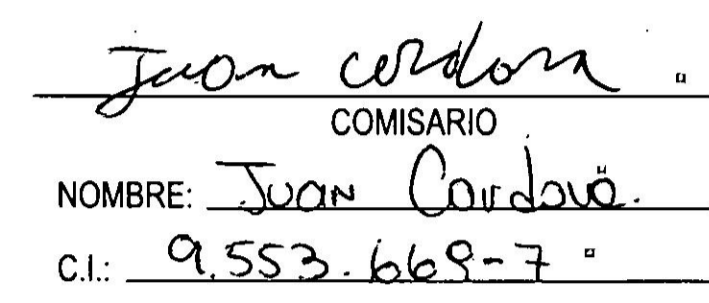 Juan Cordova
COMISARIO
NOMBRE: Juan Cordova.
C.I.: 9.553.669-7